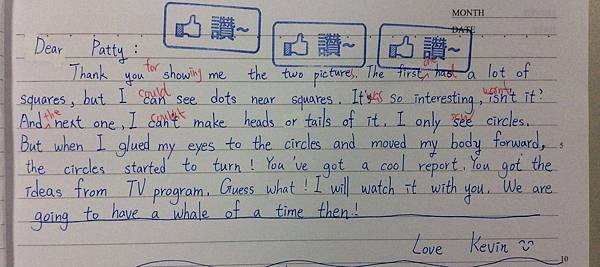 MONTH
DATE
讚~ 讚~ 讚~
Dear Patty :
Thank you for showing me the two pictures. The first one had a lot of
squares, but I can could see dots near squares. It's was so interesting, isn't wasn't it?
And the next one, I can't couldn't make heads or tails of it. I only see saw circles.
But when I glued my eyes to the circles and moved my body forward, 5
the circles started to turn! You've got a cool report. You got the
ideas from TV program. Guess what! I will watch it with you. We are
going to have a whale of a time then!
Love Kevin
10